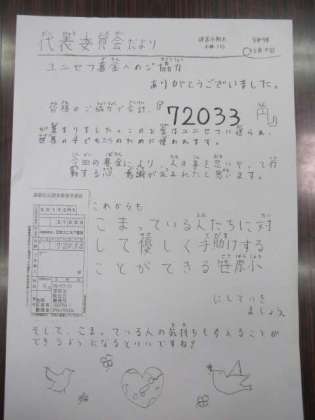 代表委員会だより
ユニセフ募金へのご協力
ありがとうございました。
皆様のご協力で合計、『72033円』
が集まりました。このお金はユニセフに送られ、
世界の子どもたちのために使われます。
今回の募金により、人の事を思いやって行
動する心、感謝が生まれたと思います。
これからも
こまっている人たちに対
して優しく手助けする
ことができる笹原小
にしていき
ましょう
そして、こまっている人の気持ちも考えることが
できるようになるといいですね!